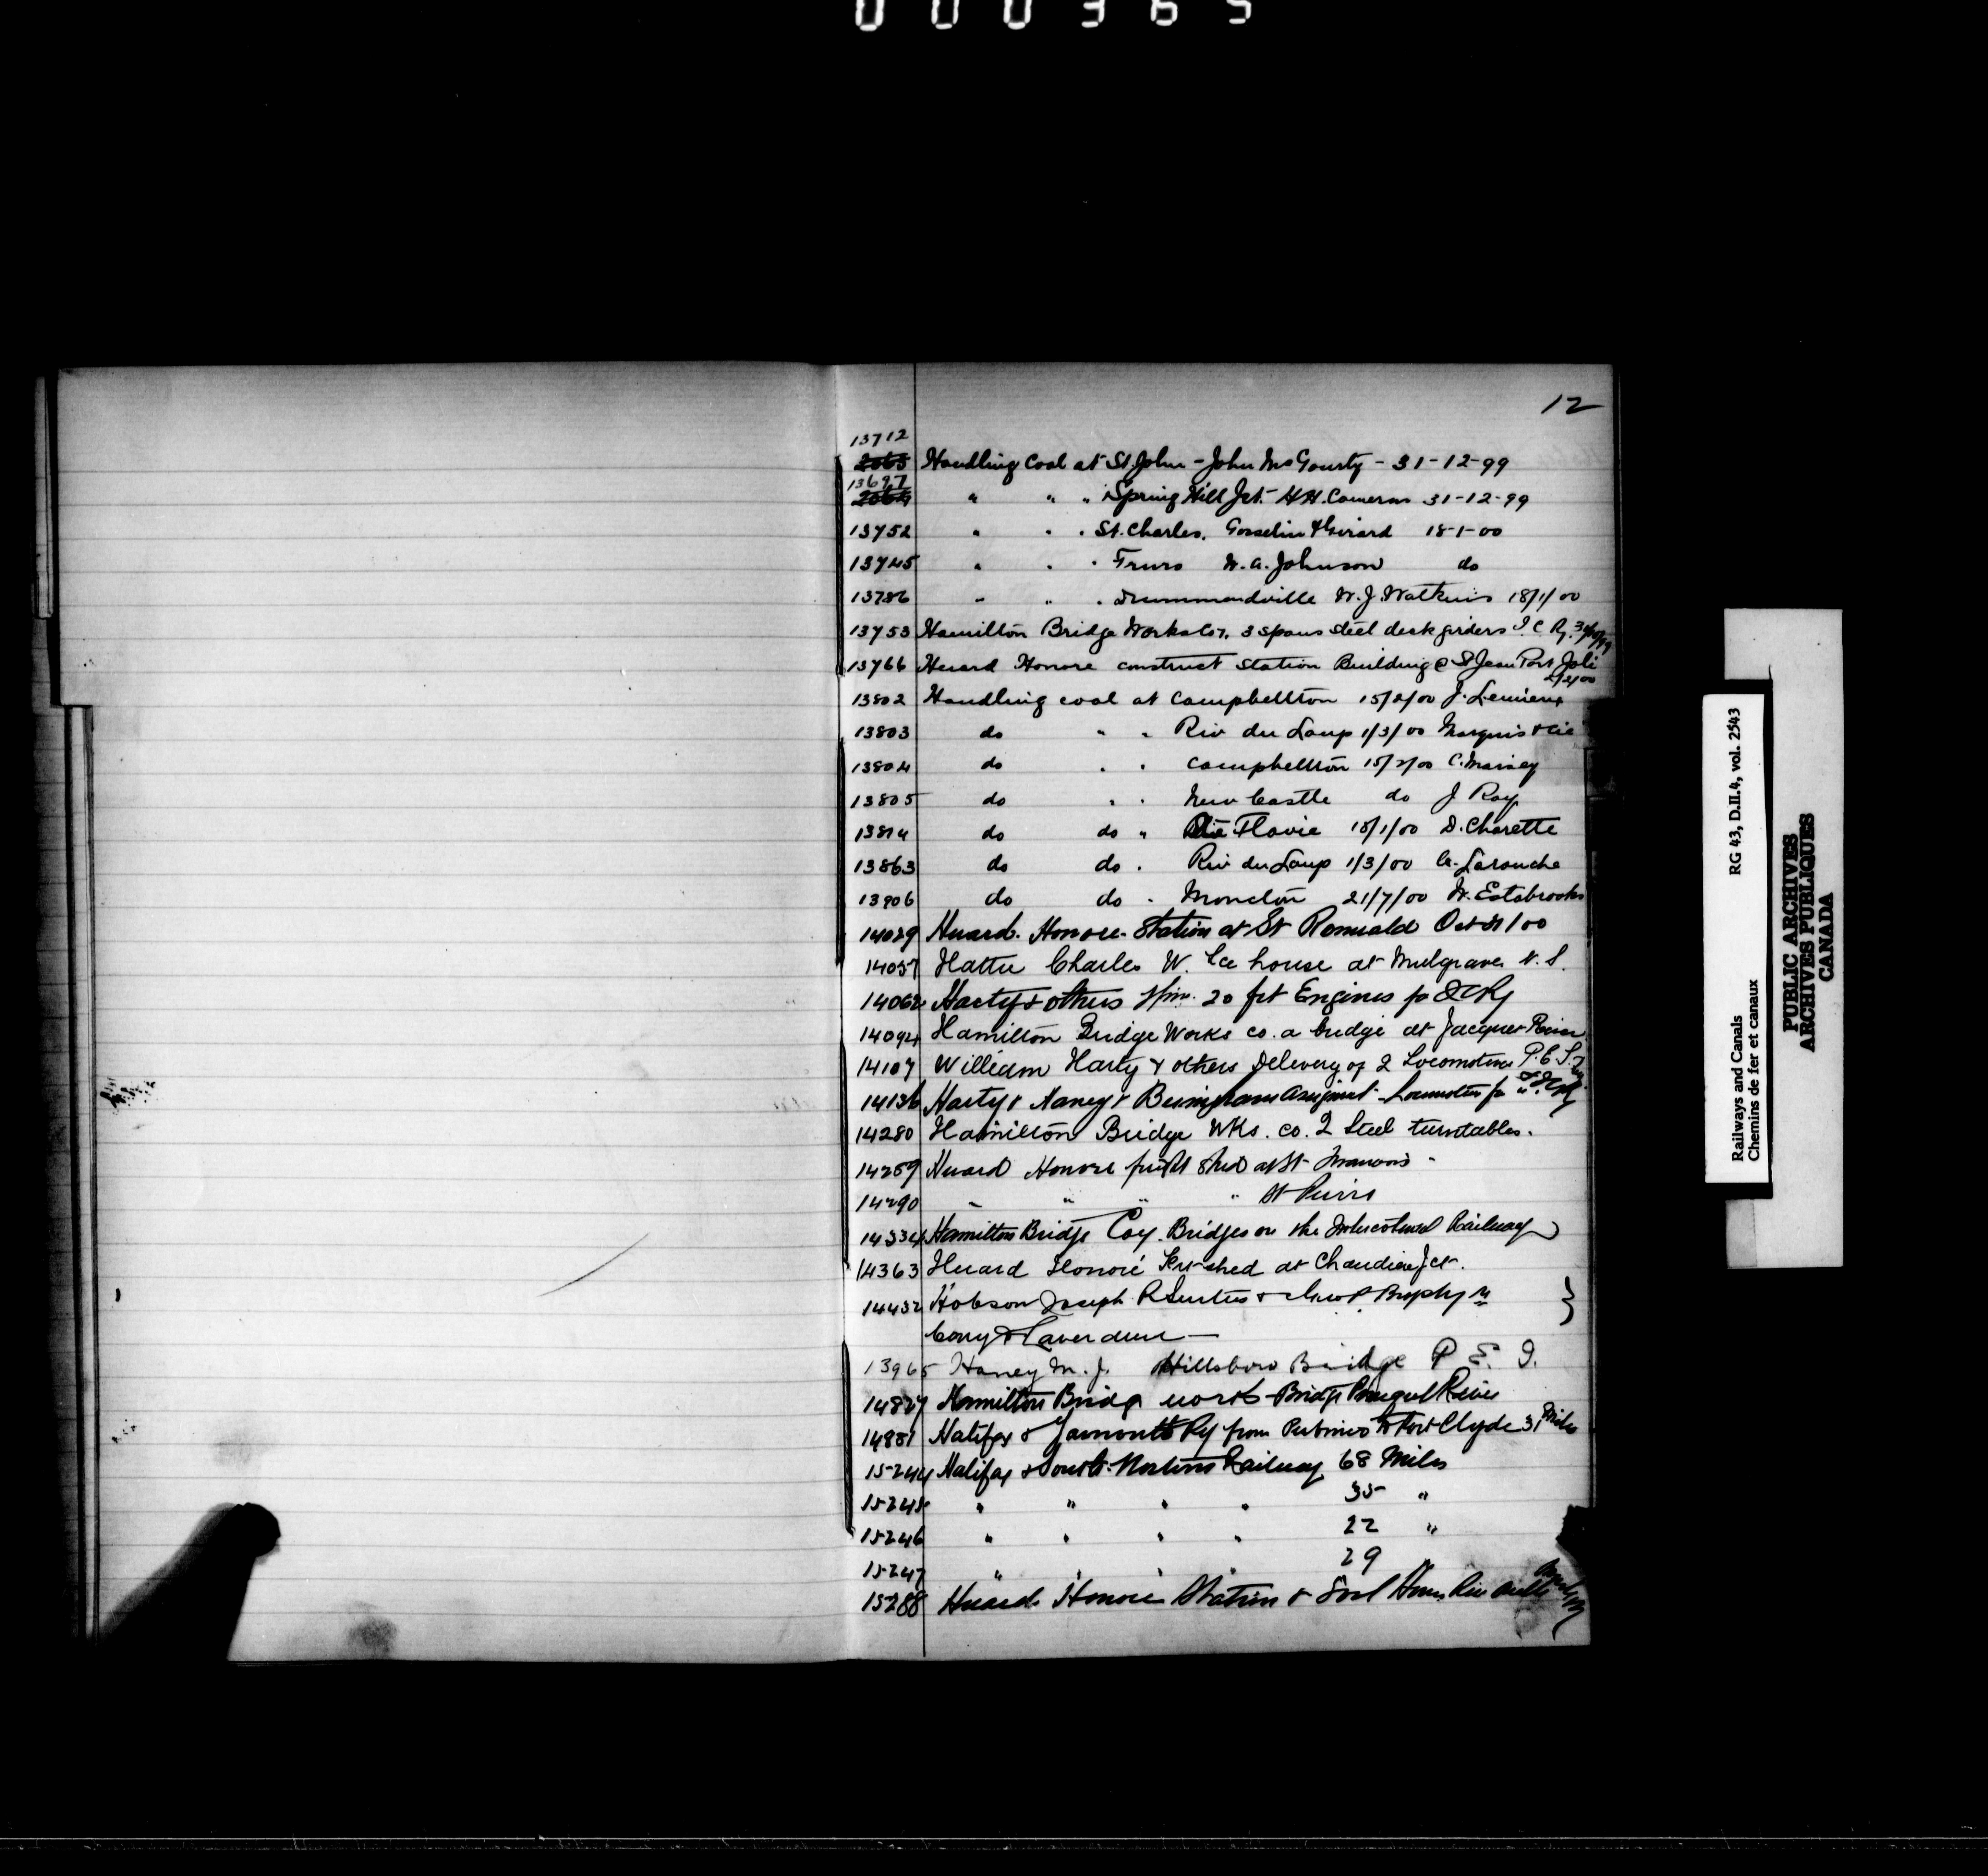 000365
12
13712
2063 Handling Coal at St. John - John McGourty - 31-12-99
13697
2064 " " " Spring Hill Jct. H.H. Cameron 31-12-99
13752 " " " St. Charles, Gosselin & Girard 18-1-00
13745 " " " Truro W. A. Johnson do
13786 " " " Drummondville W. J. Watkins 18/1/00
13753 Hamilton Bridge Works Co. 3 spans steel deck girders I.C.Ry.
13766 Huard Honore construct station Building @ St Jean Port Joli
2/2/00
13802 Handling coal at Campbellton 15/2/00 J. Lemieux
13803 do " " Riv du Loup 1/3/00 Marquis & Cie
13804 do " " Campbellton 15/2/00 C.
13805 do " " New Castle do J Roy
13814 do do " Ste Flavie 15/1/00 D. Charette
13863 do do " Riv du Loup 1/3/00 Larouche
13906 do do " Moncton 21/7/00 W. Estabrooks
14029 Huard. Honore. Station at St Romuald Oct /00
14057 Hattie Charles W. Ice house at Mulgrave N.S.
14062 Harty & others 20 frt Engines for ICRy
14094 Hamilton Bridge Works co. a bridge at Jacquet River
14107 William Harty & others Delivery of 2 Locomotives P.E.I.
14136 Harty & Haney & Birmingham Locomotives for
14280 Hamilton Bridge Wks. co. 2 Steel turntables.
14289 Huard Honore freight shed at St Francois -
14290 " " " " St Pierre
14334 Hamilton Bridge Coy. Bridges on the Intercolonial Railway
14363 Huard Honoré Frt shed at Chaudiere Jct.
14432 Hobson Joseph R & Geo P Brophy vs
Cony & Laverdure —
13965 Haney M. J. Hillsboro Bridge P. E. I.
14827 Hamilton Bridge works Bridge River
14981 Halifax & Yarmouth Ry from Pubnico to Port Clyde 31 Miles
15244 Halifax & South Western Railway 68 Miles
15245 " " " " 35 "
15246 " " " " 22 "
15247 " " " " 29
15288 Huard Honoré Station & Riv Ouelle
Railways and Canals RG 43, D.II.4, vol. 2543
Chemins de fer et canaux
PUBLIC ARCHIVES
ARCHIVES PUBLIQUES
CANADA